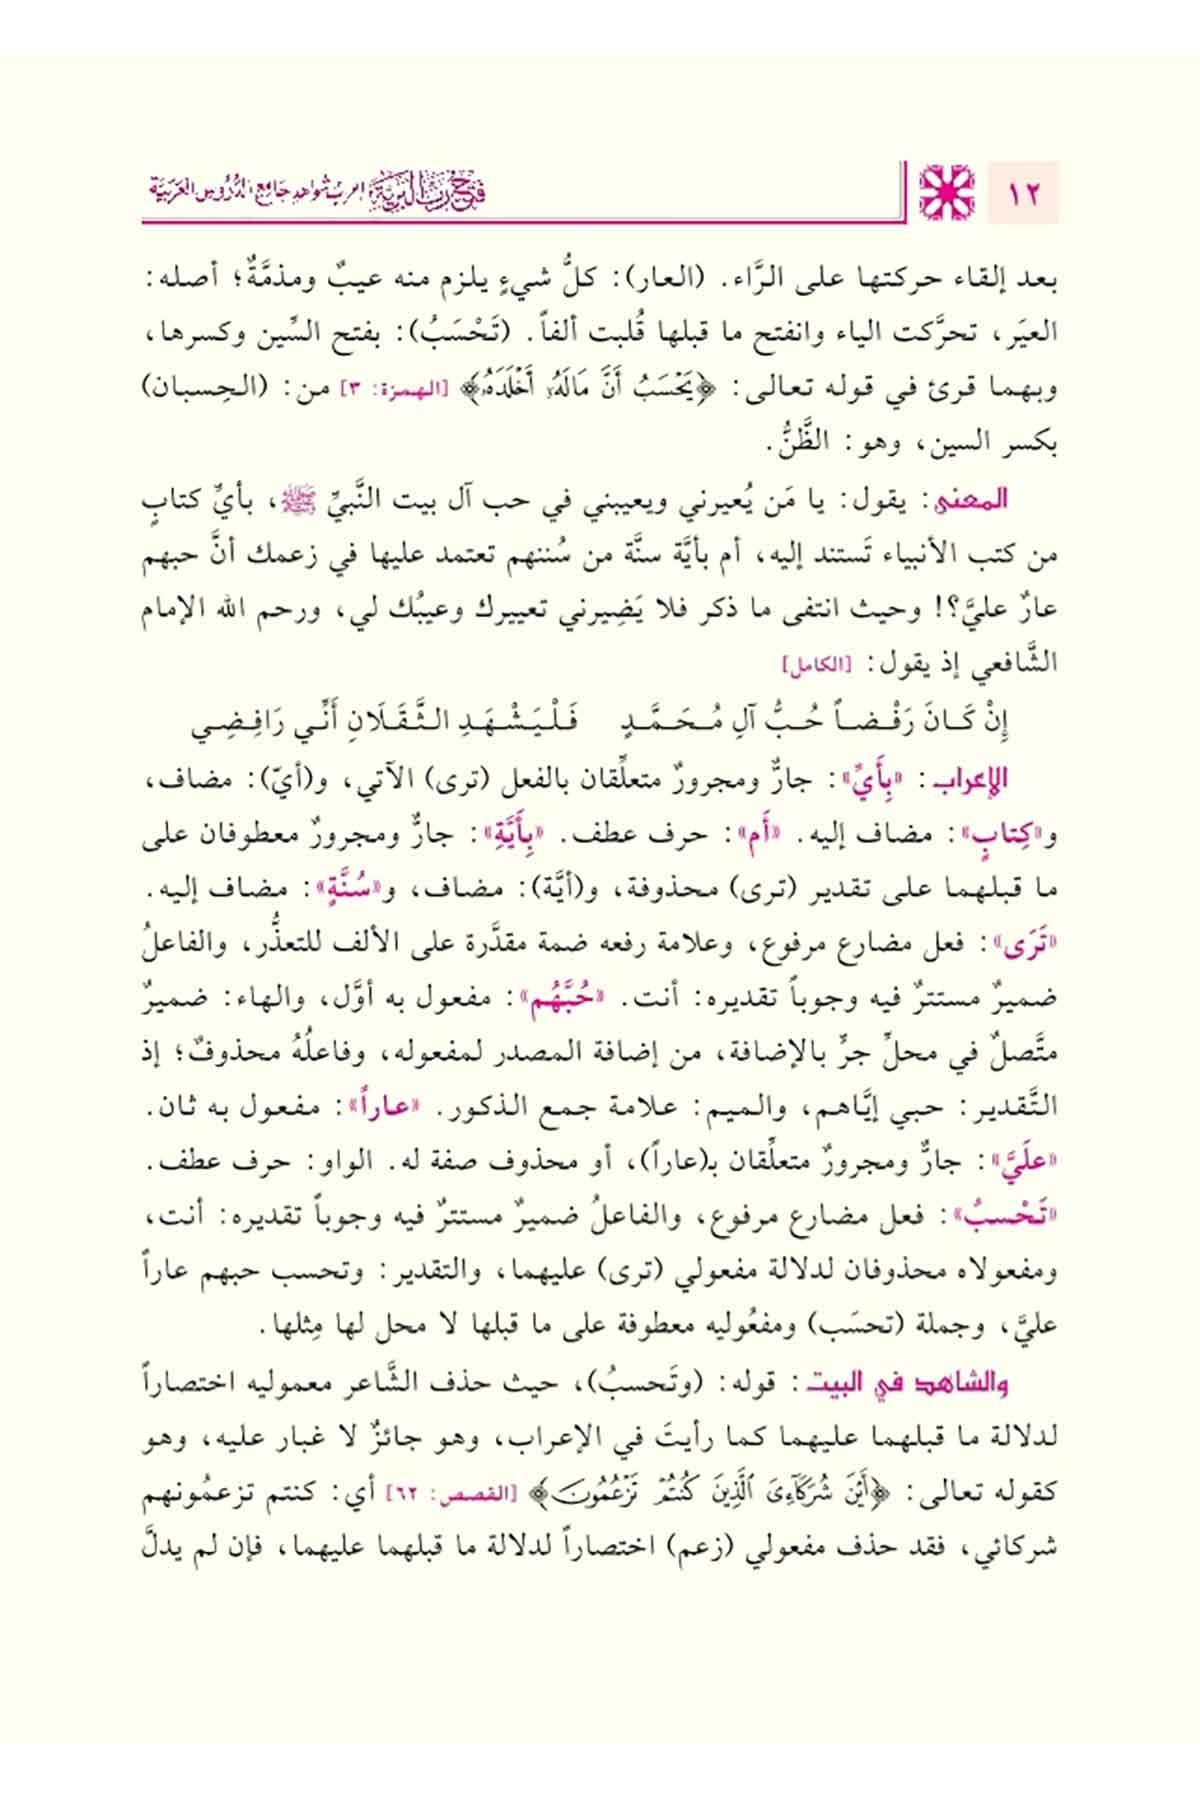 ١٢
فتح رب البرية إعراب شواهد جامع الدروس العربية
بعد إلقاء حركتها على الرَّاء. (العار): كلُّ شيءٍ يلزم منه عيبٌ ومذمَّةٌ؛ أصله:
العيَر، تحرَّكت الياء وانفتح ما قبلها قُلبت ألفاً. (تَحْسَبُ): بفتح السِّين وكسرها،
وبهما قرئ في قوله تعالى: ﴿يَحْسَبُ أَنَّ مَالَهُۥٓ أَخْلَدَهُۥ﴾ [الهمزة: ٣] من: (الحِسبان)
بكسر السين، وهو: الظَّنُّ.
المعنى: يقول: يا مَن يُعيرني ويعيبني في حب آل بيت النَّبيِّ ﷺ، بأيِّ كتابٍ
من كتب الأنبياء تَستند إليه، أم بأيَّة سنَّة من سُننهم تعتمد عليها في زعمك أنَّ حبهم
عارٌ عليَّ؟! وحيث انتفى ما ذكر فلا يَضِيرني تعييرك وعيبُك لي، ورحم الله الإمام
الشَّافعي إذ يقول: [الكامل]
إِنْ كَانَ رَفْضاً حُبُّ آلِ مُحَمَّدٍ فَلْيَشْهَدِ الثَّقَلَانِ أَنِّي رَافِضِي
الإعراب: «بِأَيِّ»: جارٌّ ومجرورٌ متعلِّقان بالفعل (ترى) الآتي، و(أيّ): مضاف،
و«كِتابٍ»: مضاف إليه. «أَم»: حرف عطف. «بِأَيَّةِ»: جارٌّ ومجرورٌ معطوفان على
ما قبلهما على تقدير (ترى) محذوفة، و(أيَّة): مضاف، و«سُنَّةٍ»: مضاف إليه.
«تَرَى»: فعل مضارع مرفوع، وعلامة رفعه ضمة مقدَّرة على الألف للتعذُّر، والفاعلُ
ضميرٌ مستترٌ فيه وجوباً تقديره: أنت. «حُبَّهُم»: مفعول به أوَّل، والهاء: ضميرٌ
متَّصلٌ في محلِّ جرٍّ بالإضافة، من إضافة المصدر لمفعوله، وفاعلُهُ محذوفٌ؛ إذ
التَّقدير: حبي إيَّاهم، والميم: علامة جمع الذكور. «عاراً»: مفعول به ثان.
«علَيَّ»: جارٌّ ومجرورٌ متعلِّقان بـ(عاراً)، أو محذوف صفة له. الواو: حرف عطف.
«تَحْسبُ»: فعل مضارع مرفوع، والفاعلُ ضميرٌ مستترٌ فيه وجوباً تقديره: أنت،
ومفعولاه محذوفان لدلالة مفعولي (ترى) عليهما، والتقدير: وتحسب حبهم عاراً
عليَّ، وجملة (تحسَب) ومفعُوليه معطوفة على ما قبلها لا محل لها مِثلها.
والشاهد في البيت: قوله: (وتَحسبُ)، حيث حذف الشَّاعر معموليه اختصاراً
لدلالة ما قبلهما عليهما كما رأيتَ في الإعراب، وهو جائزٌ لا غبار عليه، وهو
كقوله تعالى: ﴿أَيْنَ شُرَكَآءِىَ ٱلَّذِينَ كُنتُمْ تَزْعُمُونَ﴾ [القصص: ٦٢] أي: كنتم تزعمُونهم
شركائي، فقد حذف مفعولي (زعم) اختصاراً لدلالة ما قبلهما عليهما، فإن لم يدلَّ